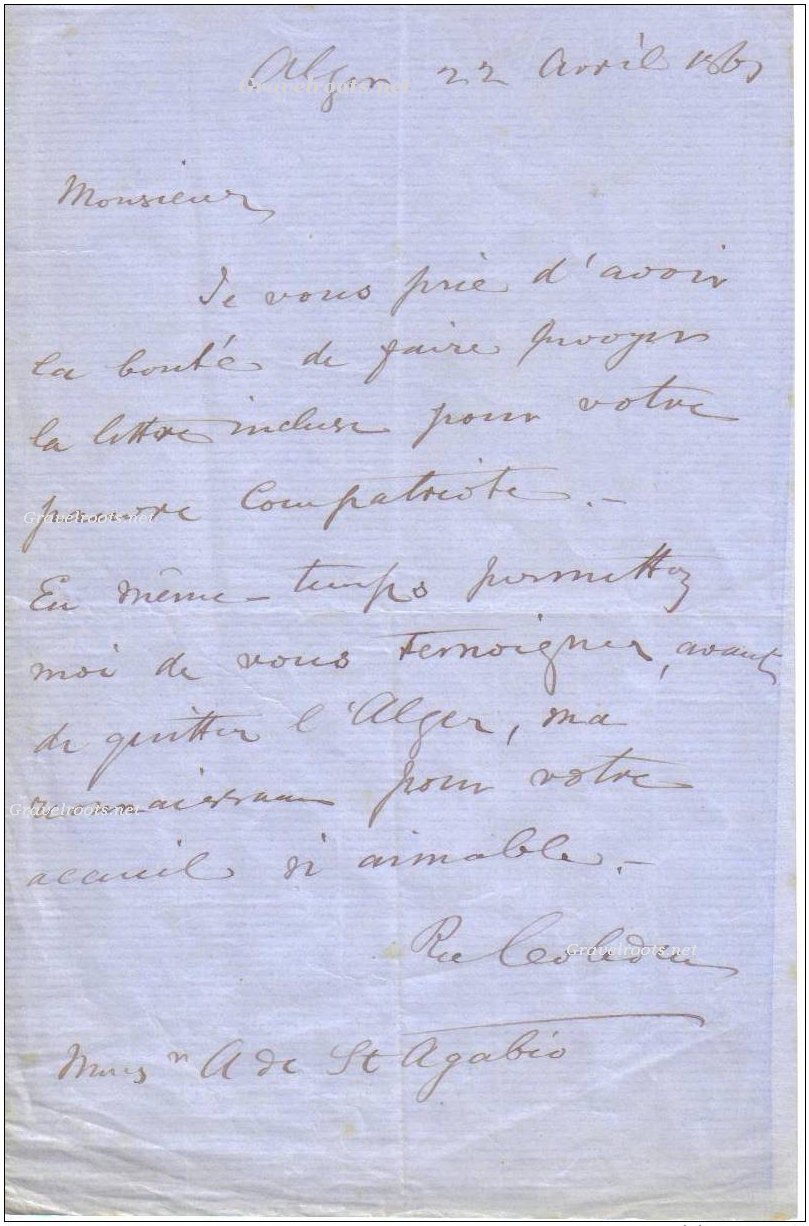 Alger 22 Avril 1861
Monsieur
Je vous prie d'avoir
la bonté de faire
la lettre incluse pour votre
pauvre Compatriote. –
En même – temps permettez
moi de vous temoigner, avant
de quitter l'Alger, ma
reconnaissance pour votre
acceuil si aimable. –
Rd Cobden
A de St Agabio
Gravelroots.net
Gravelroots.net
Gravelroots.net
Gravelroots.net